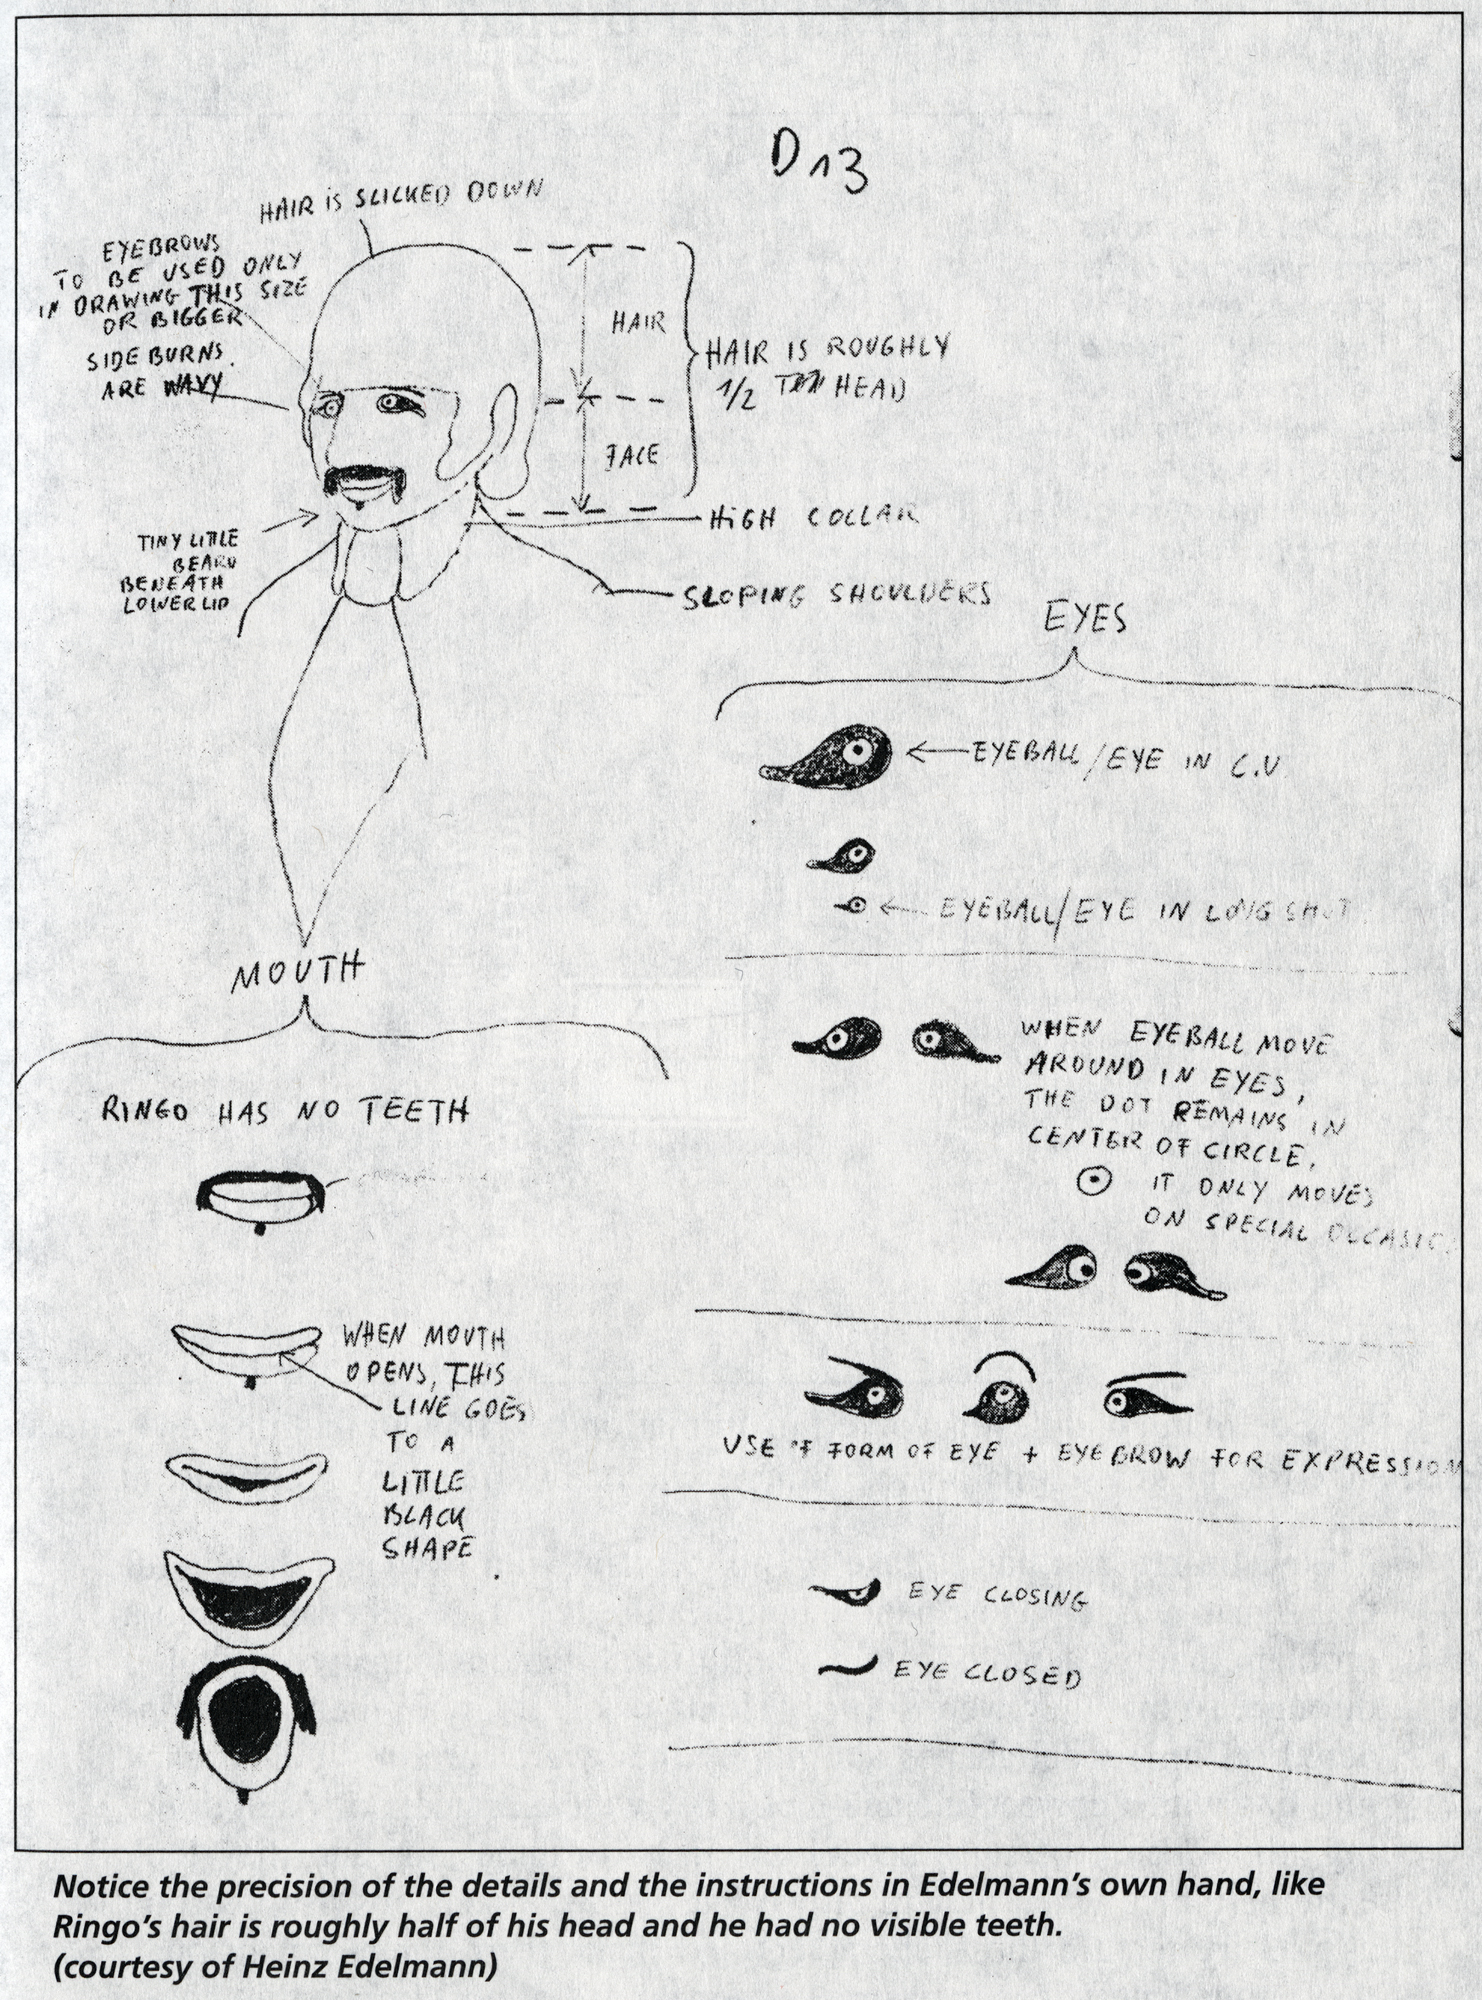 D13
HAIR iS SLICKED DOWN
EYEBROWS
TO BE USED ONLY
IN DRAWING THIS SIZE
OR BIGGER
SIDE BURNS
ARE WAVY
HAIR
HAIR IS ROUGHLY
1/2 HEAD
FACE
HiGH COLLAR
TINY LITTLE
BEARD
BENEATH
LOWER LIP
SLOPING SHOULDERS
EYES
EYEBALL/EYE IN C.U
EYEBALL/EYE IN LONG SHOT
WHEN EYEBALL MOVE
AROUND IN EYES,
THE DOT REMAINS IN
CENTER OF CIRCLE.
IT ONLY MOVES
ON SPECIAL
USE OF FORM OF EYE + EYEBROW FOR EXPRESSION
EYE CLOSING
EYE CLOSED
MOUTH
RINGO HAS NO TEETH
WHEN MOUTH
OPENS, THIS
LINE GOES
TO A
LITTLE
BLACK
SHAPE
Notice the precision of the details and the instructions in Edelmann's own hand, like
Ringo's hair is roughly half of his head and he had no visible teeth.
(courtesy of Heinz Edelmann)